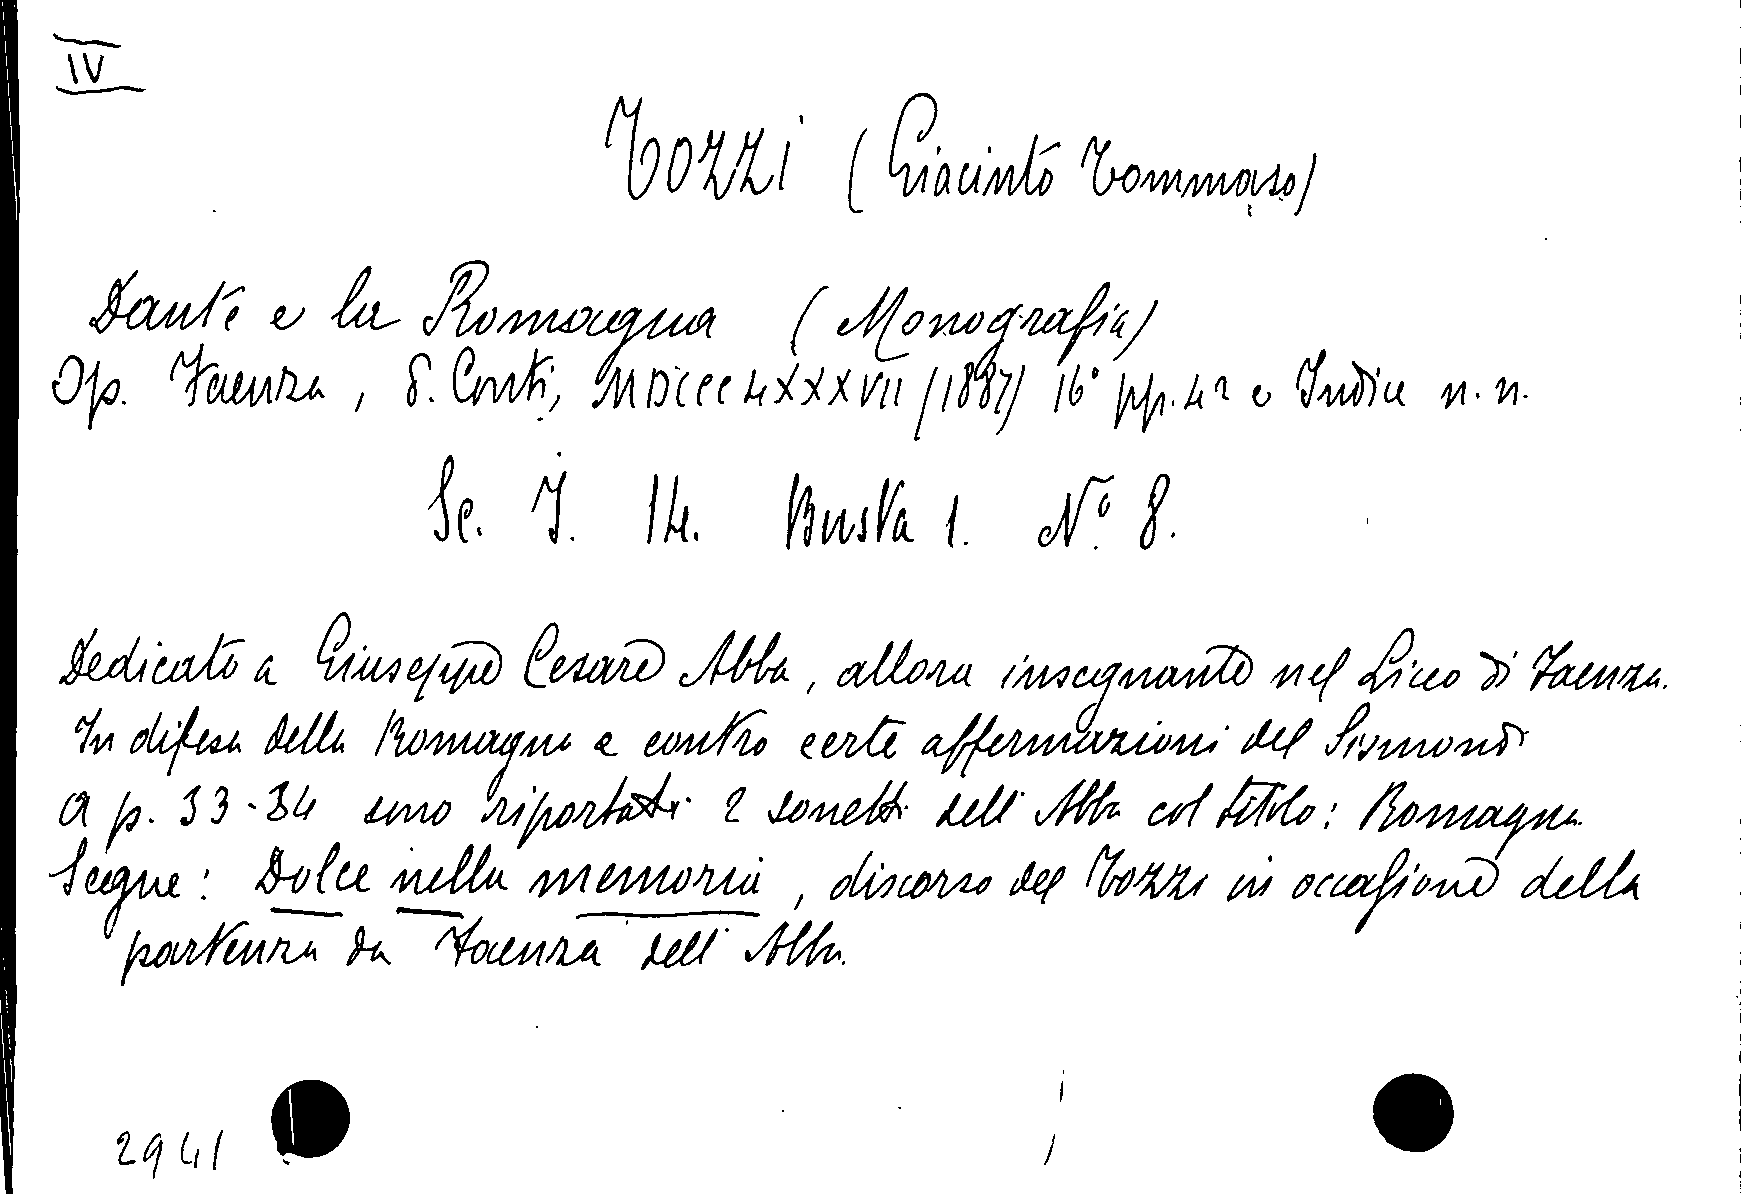 IV
Tozzi (Giacinto Tommaso)
Dante e la Romagna (Monografia)
Op. Faenza, P. Conti, MDCCCLXXXVII (1887) 16° pp. 42 e Indice n. n.
Sc. I. 14. Busta 1. N.° 8.
Dedicato a Giuseppe Cesare Abba, allora insegnante nel Liceo di Faenza.
In difesa della Romagna e contro certe affermazioni del Sismondi
a p. 33-34 sono riportati 2 sonetti dell'Abba col titolo: Romagna
Segue: Dolce nella memoria, discorso del Tozzi in occasione della
partenza da Faenza dell'Abba.
2941